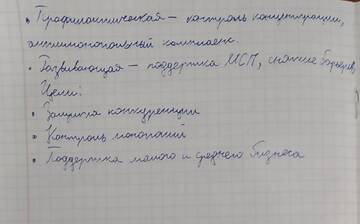 • Профилактическая — контроль концентрации,
антимонопольный комплаенс.
• Развивающая — поддержка МСП, снятие барьеров.
Цели:
• Защита конкуренции
• Контроль монополий
• Поддержка малого и среднего бизнеса